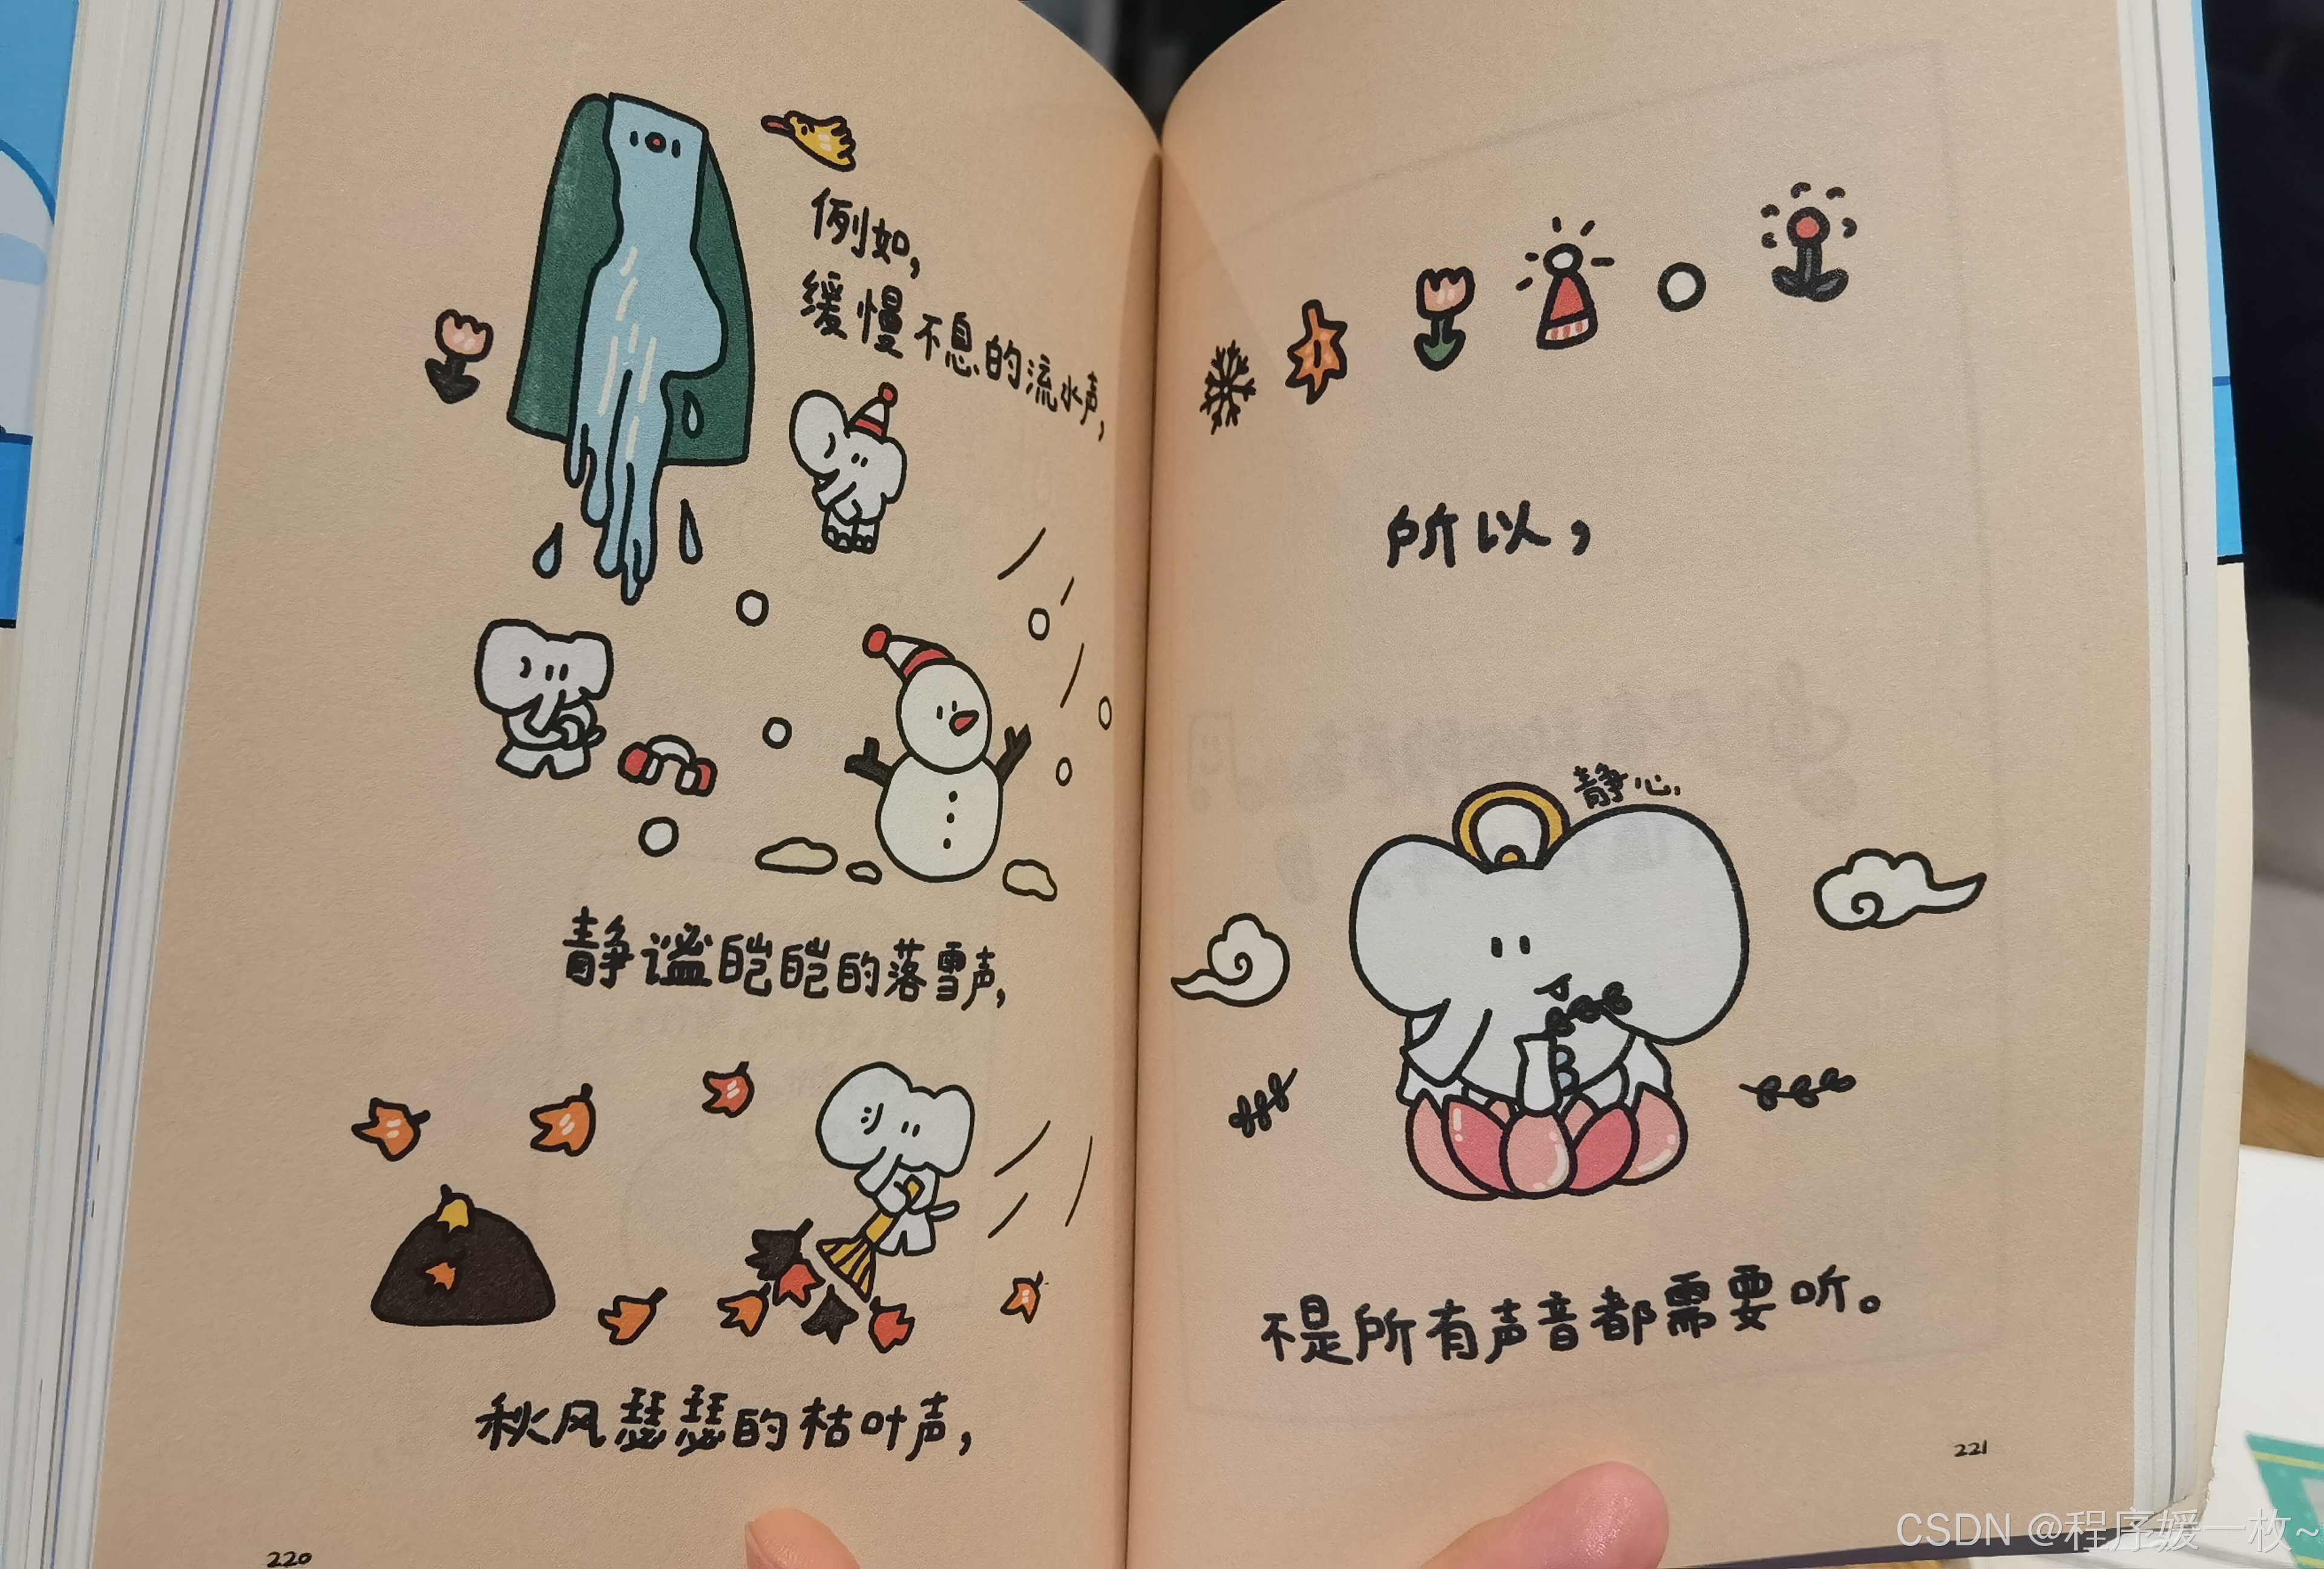 例如，
缓慢不息的流水声，
静谧皑皑的落雪声，
秋风瑟瑟的枯叶声，
220
所以，
静心.
不是所有声音都需要听。
221
CSDN @程序媛一枚~